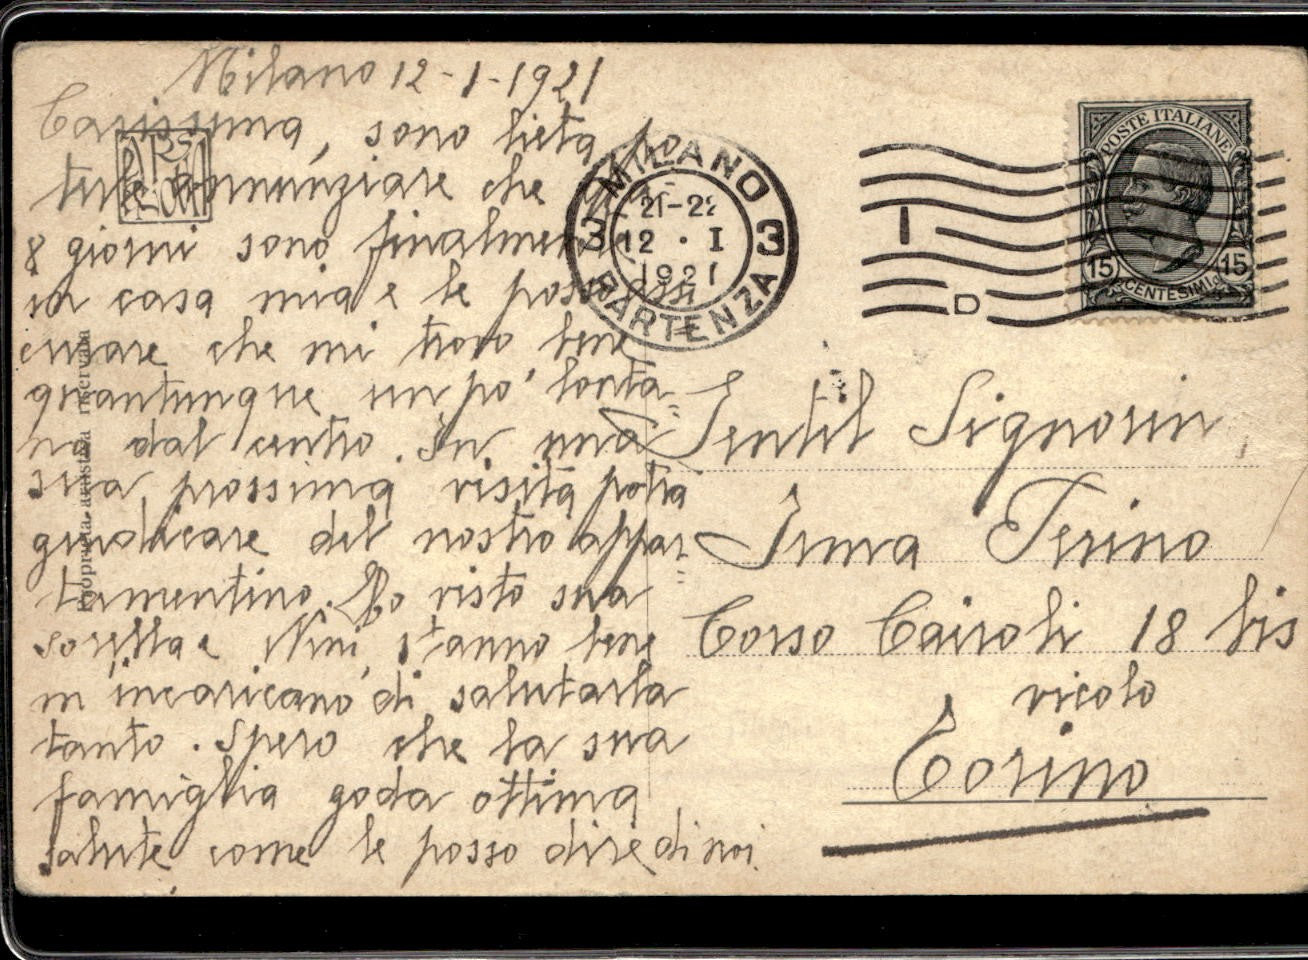 Milano 12-1-1921
Carissima, sono lieta po
terle annunziare che
8 giorni sono finalmente
in casa mia e le posso assi
curare che mi trovo bene
quantunque un po' lonta
no dal centro. In una
sua prossima visita potrà
giudicare del nostro appar
tamentino. Ho visto sua
sorella e Nini, stanno bene
m'incaricano di salutarla
tanto. Spero che la sua
famiglia goda ottima
salute come le posso dire di noi
Proprietà artistica riservata
MILANO
PARTENZA
3 3
21-22
12 · I
1921
I
D
POSTE ITALIANE
15 15
CENTESIMI
Gentil Signorin
Irma Ferino
Corso Cairoli 18 bis
vicolo
Torino